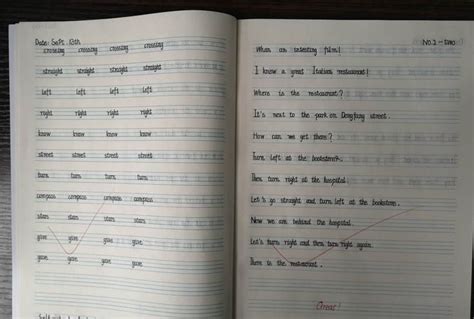 Date: Sept. 13th
crossing crossing crossing crossing
straight straight straight straight
left left left left
right right right right
know know know know
street street street street
turn turn turn turn
compass compass compass compass
stars stars stars stars
gave gave gave gave
gave gave gave gave
What an interesting film!
I know a great Italian restaurant!
Where is the restaurant?
It's next to the park on Dongfang street.
How can we get there?
Turn left at the bookstore.
Then turn right at the hospital.
Let's go straight and turn left at the bookstore.
Now we are behind the hospital.
Let's turn right and then turn right again.
There is the restaurant.
Great!